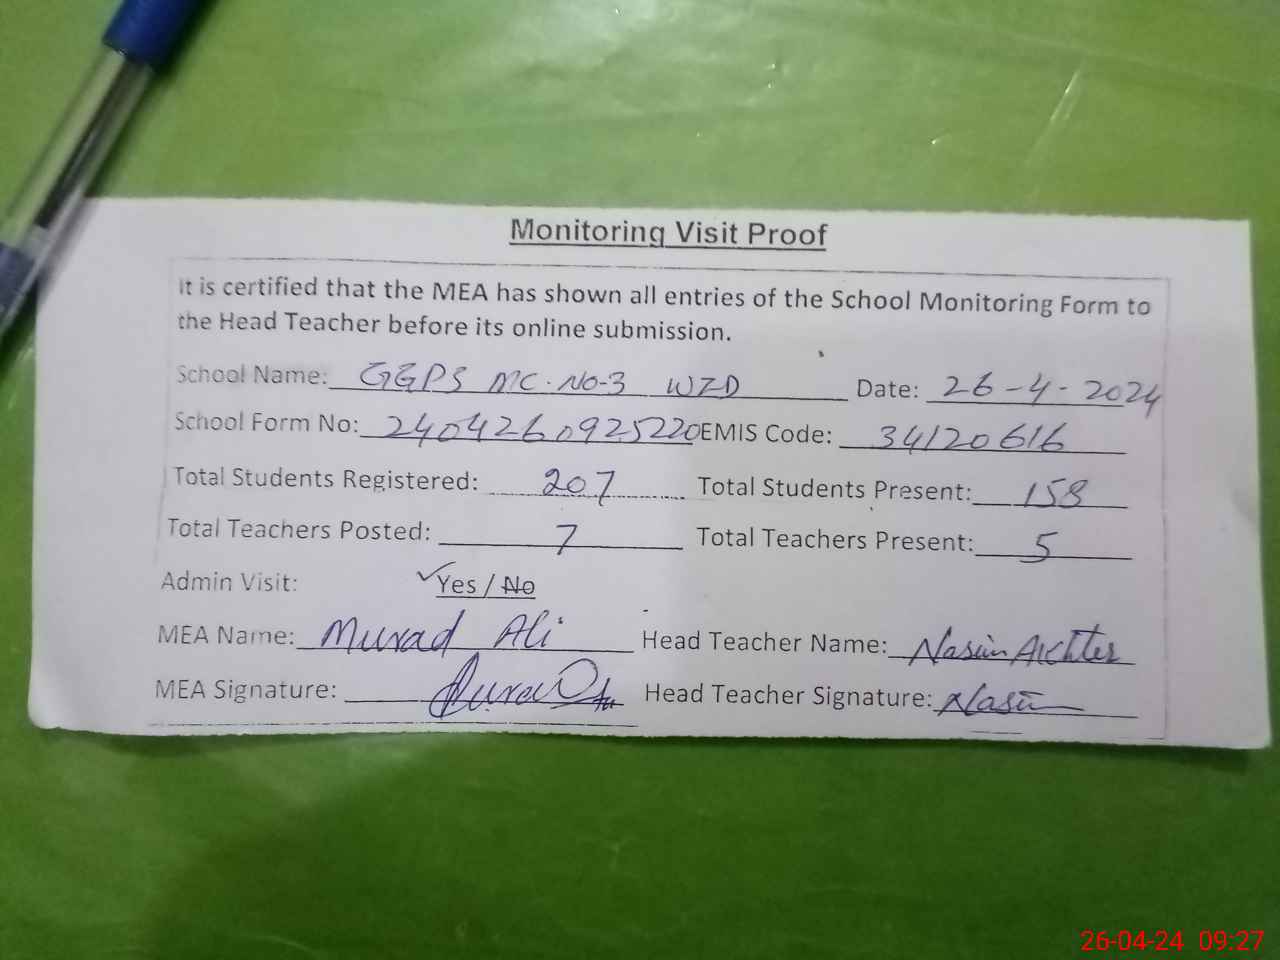 Monitoring Visit Proof
It is certified that the MEA has shown all entries of the School Monitoring Form to
the Head Teacher before its online submission.
School Name: GGPS MC. NO-3 WZD Date: 26-4-2024
School Form No: 240426092522​0 EMIS Code: 34120616
Total Students Registered: 207 Total Students Present: 158
Total Teachers Posted: 7 Total Teachers Present: 5
Admin Visit: Yes / No
MEA Name: Murad Ali Head Teacher Name: Nasim Akhter
MEA Signature: Head Teacher Signature: Nasim
26-04-24 09:27